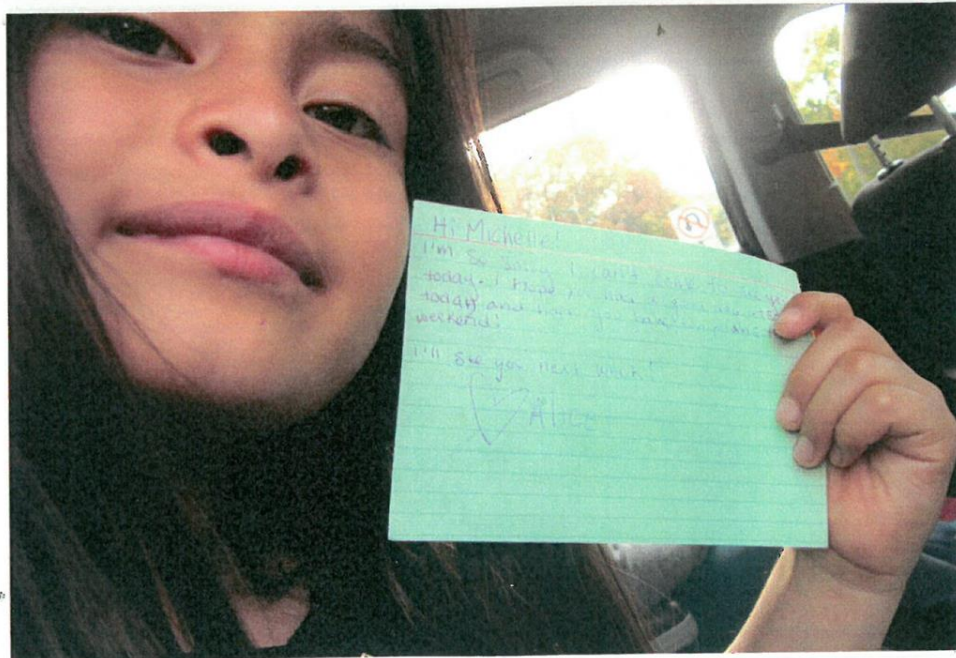 Hi Michelle!
I'm so sorry I can't come to see you
today. I hope you had a good
today and hope you have an
weekend!
I'll see you next week!
Alice